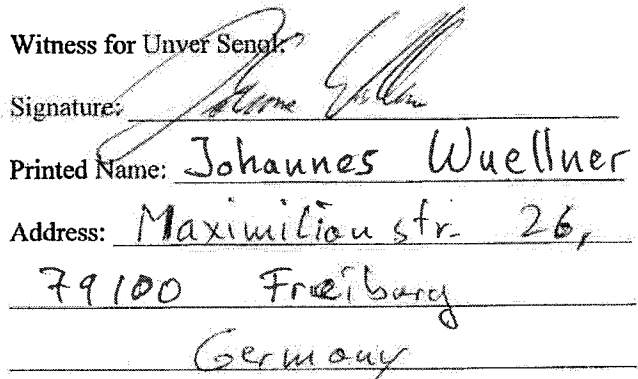 Witness for Unver Senol:
Signature:
Printed Name: Johannes Wuellner
Address: Maximilianstr. 26,
79100 Freiburg
Germany